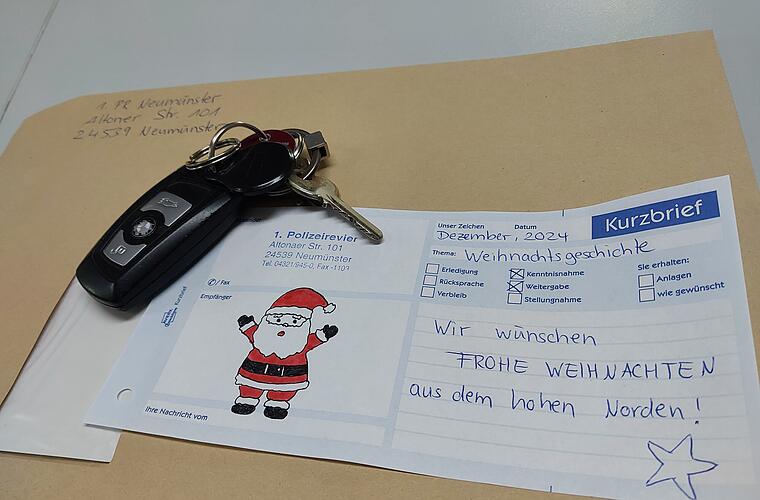 1. PR Neumünster
Altoner Str. 101
24539 Neumünster
Kurzbrief
1. Polizeirevier
Altonaer Str. 101
24539 Neumünster
Tel. 04321/945-0, Fax -1109
✆/ Fax
Empfänger
Kurzbrief
Ihre Nachricht vom
Unser Zeichen Datum
Dezember, 2024
Thema: Weihnachtsgeschichte
Erledigung
Rücksprache
Verbleib
Kenntnisnahme
Weitergabe
Stellungnahme
Sie erhalten:
Anlagen
wie gewünscht
Wir wünschen
FROHE WEIHNACHTEN
aus dem hohen Norden!